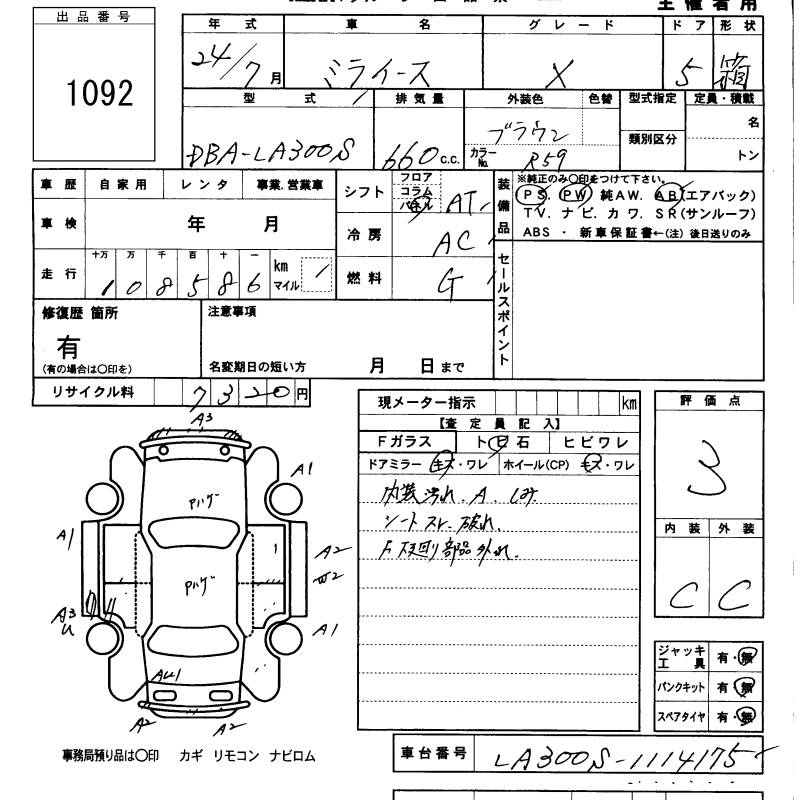 主催者用
出品番号
1092
年式 車名 グレード ドア 形状
24/7月 ミライース X 5 箱
型式 排気量 外装色 色替 型式指定 定員・積載
DBA-LA300S 660 c.c. ブラウン カラーNo. R59 類別区分 名 トン
車歴 自家用 レンタ 事業.営業車
車検 年 月
走行 十万 万 千 百 十 一 km マイル
1 0 8 5 8 6
シフト フロア コラム パネル AT
冷房 AC
燃料 G
装備品 ※純正のみ〇印をつけて下さい。
PS. PW 純AW. AB(エアバック)
TV. ナビ. カワ. SR(サンルーフ)
ABS ・ 新車保証書←(注) 後日送りのみ
セールスポイント
修復歴 箇所
有
(有の場合は〇印を)
注意事項
名変期日の短い方 月 日まで
リサイクル料 7320円
現メーター指示 km
【査定員記入】
Fガラス トビ石 ヒビワレ
ドアミラー キズ・ワレ ホイール(CP) キズ・ワレ
内装汚れ.A.しみ
シートスレ.破れ.
F下廻り部品外れ.
評価点
3
内装 外装
C C
ジャッキ工具 有・無
パンクキット 有・無
スペアタイヤ 有・無
A3
A1
Pハゲ
A1
A2
W2
Pハゲ
A3
U
A1
AU1
A2
A2
事務局預り品は〇印 カギ リモコン ナビロム
車台番号 LA300S-1114175